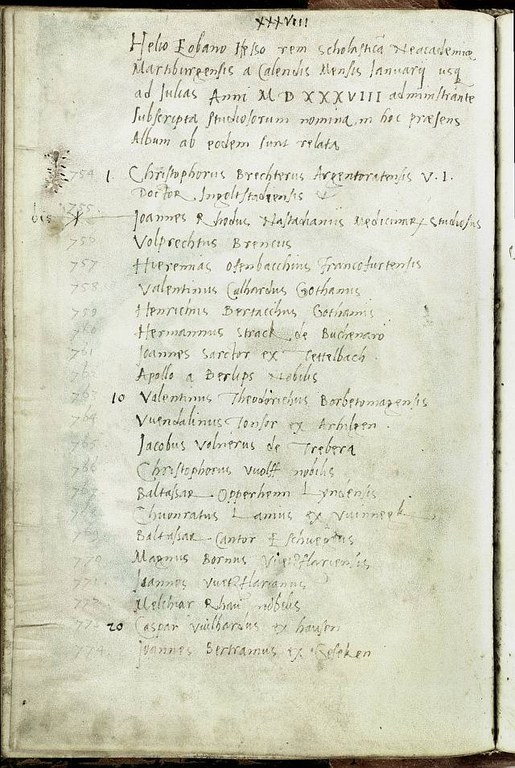 XXXVIII
Helio Eobano Hesso rem scholasticã Neacademiae
Martiburgensis a Calendis Mensis Ianuarij usq
ad Iulias Anni M D XXXVIII administrante
Subscripta studiosorum nomina in hoc præsens
Album ab eodem sunt relata
754 1. Christophorus Brechterus Argentoratensis V. I.
Doctor Ingolstadiensis
bis 755 Ioannes Rhodus Medicinae Studiosus
756 Volprechtus Brencus
757 Hieremias Ofenbacchius Francofurtensis
758 Valentinus Culhardus Gothanus
759 Henrichus Bertacchus Gothanus
760 Hermannus Strack de Buchenaro
761 Ioannes Sarctor ex Tettelbach
762 Apollo a Berlips Nobilis
763 10 Valentinus Theodorichus Borbetomagensis
764 Vuendalinus Tonsor ex Arhilgen
765 Iacobus Volnerus de Trebera
766 Christophorus Vuolff nobilis
767 Baltassar Opperhem Lyndensis
768 Chuonratus Lamus ex
769 Baltassar Cantor
770 Magnus Bornus Vuetzflariensis
771 Ioannes Vuetzflarianus
772 Melchior Rhau nobilis
773 20 Caspar Vuilhardus ex hausen
774 Ioannes Bertramus ex Geseken